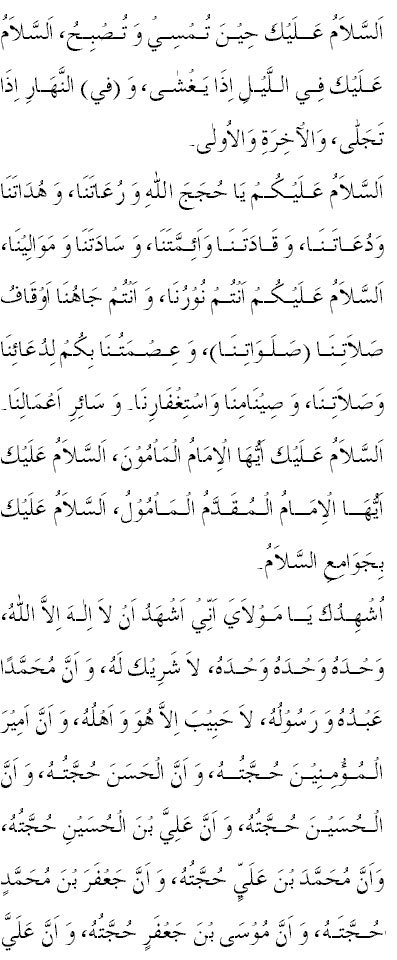 اَلسَّلاَمُ عَلَيْكَ حِيْنَ تُمْسِيْ وَ تُصْبِحُ، اَلسَّلاَمُ
عَلَيْكَ فِي اللَّيْلِ اِذَا يَغْشٰى، وَ (في) النَّهَارِ اِذَا
تَجَلّٰى، وَالْآخِرَةِ وَالْاُولٰى۔
اَلسَّلاَمُ عَلَيْكُمْ يَا حُجَجَ اللهِ وَ رُعَاتَنَا، وَ هُدَاتَنَا
وَدُعَاتَنَا، وَ قَادَتَنَا وَاَئِمَّتَنَا، وَ سَادَتَنَا وَ مَوَالِيْنَا،
اَلسَّلاَمُ عَلَيْكُمْ اَنْتُمْ نُوْرُنَا، وَ اَنْتُمْ جَاهُنَا اَوْقَافُ
صَلاَتِنَا (صَلَوَاتِنَا)، وَ عِصْمَتُنَا بِكُمْ لِدُعَائِنَا
وَصَلاَتِنَا، وَ صِيْنَامِنَا وَاسْتِغْفَارِنَا۔ وَ سَائِرِ اَعْمَالِنَا۔
اَلسَّلاَمُ عَلَيْكَ اَيُّهَا الْاِمَامُ الْمَاْمُوْنَ، اَلسَّلاَمُ عَلَيْكَ
اَيُّهَا الْاِمَامُ الْمُقَدَّمُ الْمَاْمُوْلُ، اَلسَّلاَمُ عَلَيْكَ
بِجَوَامِعِ السَّلاَمُ۔
اُشْهِدُكَ يَا مَوْلاَيَ اَنِّيْ اَشْهَدُ اَنْ لاَ اِلٰهَ اِلاَّ اللهُ،
وَحْدَهُ وَحْدَهُ وَحْدَهُ، لاَ شَرِيْكَ لَهُ، وَ اَنَّ مُحَمَّدًا
عَبْدُهُ وَ رَسُوْلُهُ، لاَ حَبِيْبَ اِلاَّ هُوَ وَ اَهْلُهُ، وَ اَنَّ اَمِيْرَ
الْمُؤْمِنِيْنَ حُجَّتُهُ، وَ اَنَّ الْحَسَنَ حُجَّتُهُ، وَ اَنَّ
الْحُسَيْنَ حُجَّتُهُ، وَ اَنَّ عَلِيَّ بْنَ الْحُسَيْنِ حُجَّتُهُ،
وَاَنَّ مُحَمَّدَ بْنَ عَلَيٍّ حُجَّتُهُ، وَ اَنَّ جَعْفَرَ بْنَ مُحَمَّدٍ
حُجَّتَهُ، وَ اَنَّ مُوْسَى بْنَ جَعْفَرٍ حُجَّتُهُ، وَ اَنَّ عَلَيَّ